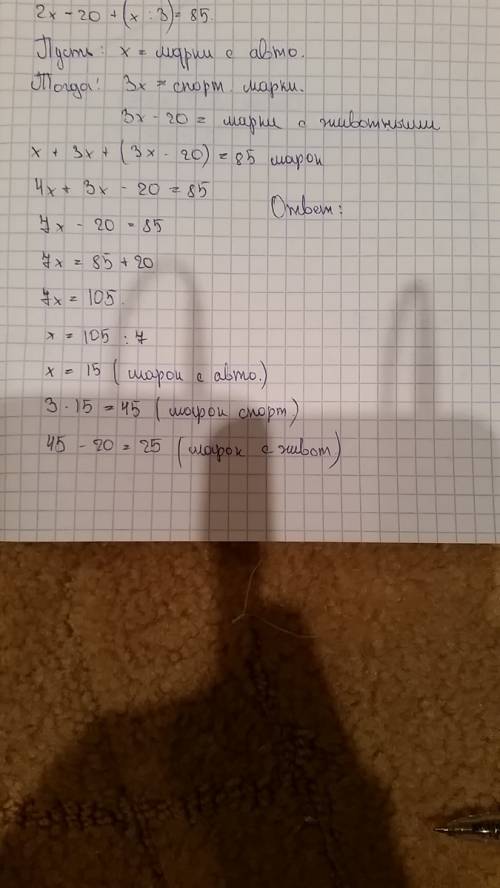 2x - 20 + (x : 3) = 85.
Пусть: x = марки с авто.
Тогда: 3x = спорт. марки.
3x - 20 = марки с животными
x + 3x + (3x - 20) = 85 марок
4x + 3x - 20 = 85
Ответ:
7x - 20 = 85
7x = 85 + 20
7x = 105.
x = 105 : 7
x = 15 (марок с авто.)
3 · 15 = 45 (марок спорт)
45 - 20 = 25 (марок с живот)